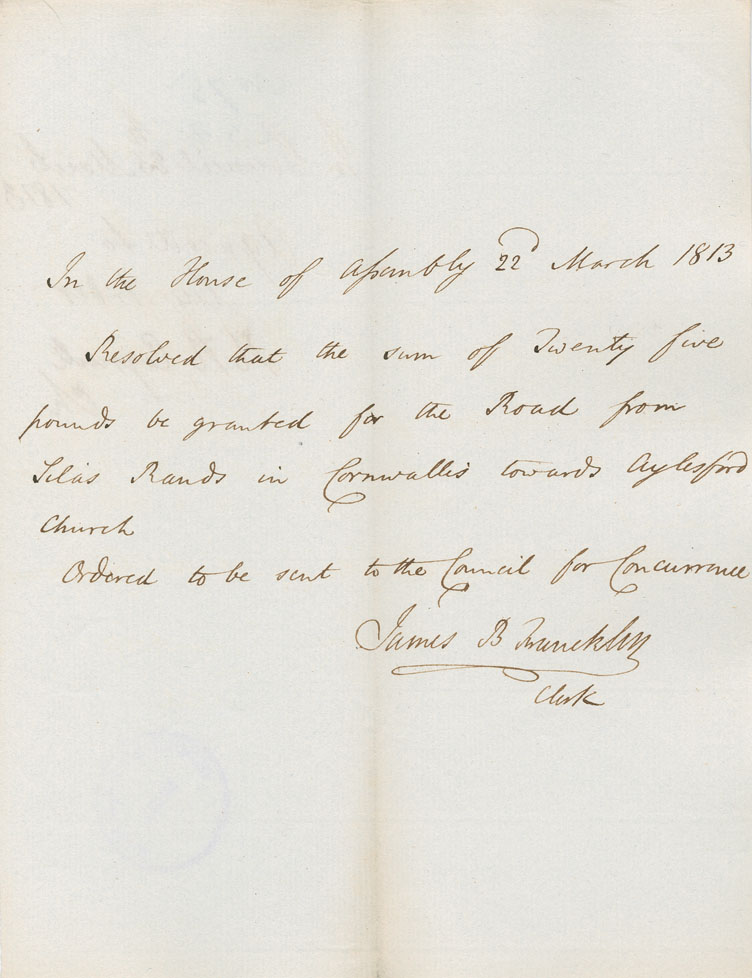 In the House of Assembly 22d March 1813
Resolved that the sum of Twenty five
pounds be granted for the Road from
Silas Rands in Cornwallis towards Aylesford
Church
Ordered to be sent to the Council for Concurrence
James B Francklin
Clerk